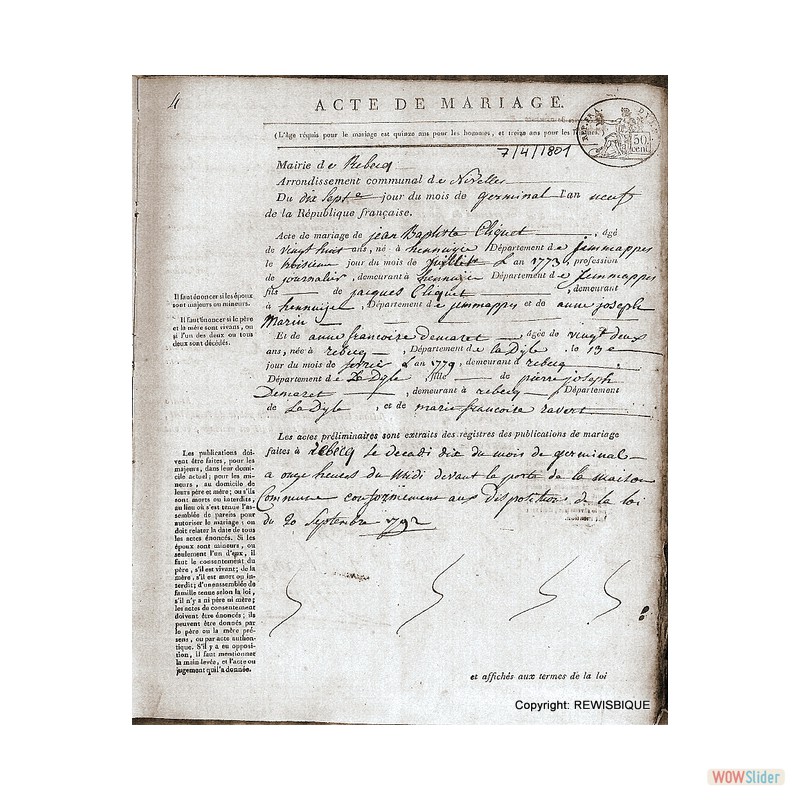 4
ACTE DE MARIAGE.
(L'âge réquis pour le mariage est quinze ans pour les hommes, et treize ans pour les
7/4/1801
REP. FRA.
DYLE
50
cent.
Mairie de Rebecq
Arrondissement communal de Nivelles
Du dix sept jour du mois de germinal l'an neuf
de la République française.
Acte de mariage de jean Baptiste Cliquet , âgé
de vingt huit ans, né à hennuijer Département de jemmappes
le jour du mois de l an 1773, profession
de journalier, demeurant à hennuijer Département de jemmappes
fils de jacques Cliquet , demeurant
à hennuijer, Département de jemmappes et de anne joseph
Marin
Et de anne francoise Demaret âgée de vingt deux
ans, née à rebecq , Département de la Dyle , le 13 e
jour du mois de l an 1779, demeurant à rebecq
Département de La Dyle , fille de pierre joseph
Demaret , demeurant à rebecq , Département
de La Dyle , et de marie francoise ravert
Les actes préliminaires sont extraits des registres des publications de mariage
faites à rebecq le decadi dix du mois de germinal
a onze heures du Midi devant la porte de la maison
Commune conformement aux Dispositions de la loi
du 20 Septembre 1792
Il faut énoncer si les époux
sont majeurs ou mineurs.
Il faut énoncer si le père
et la mère sont vivans, ou
si l'un des deux ou tous
deux sont décédés.
Les publications doi-
vent être faites, pour les
majeurs, dans leur domi-
cile actuel; pour les mi-
neurs, au domicile de
leurs père et mère; ou s'ils
sont morts ou interdits,
au lieu où s'est tenue l'as-
semblée de parens pour
autoriser le mariage; on
doit relater la date de tous
les actes énoncés. Si les
époux sont mineurs, ou
seulement l'un d'eux, il
faut le consentement du
père, s'il est vivant; de la
mère, s'il est mort ou in-
terdit; d'une assemblée de
famille tenue selon la loi,
s'il n'y a ni père ni mère;
les actes de consentement
doivent être énoncés; ils
peuvent être donnés par
le père ou la mère pré-
sens, ou par acte authen-
tique. S'il y a eu opposi-
tion, il faut mentionner
la main levée, et l'acte ou
jugement qui l'a donnée.
et affichés aux termes de la loi
Copyright: REWISBIQUE
WOWSlider